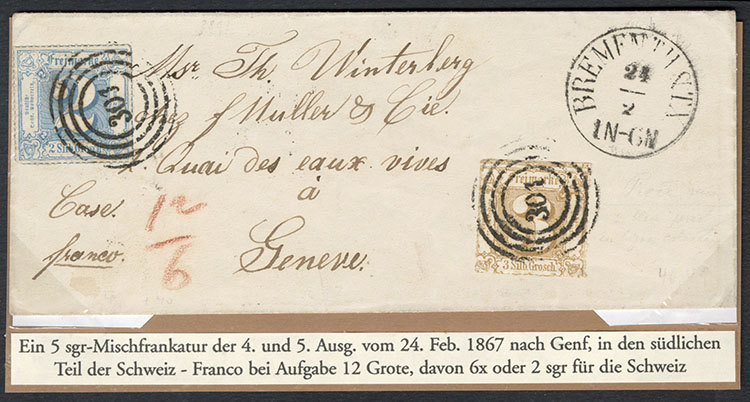 Freimarke
2 Silb. Grosch.
301
Msr Th. Winterberg
chez J Müller & Cie.
Quai des eaux vives
à
Geneve.
Case.
franco.
12
6
BREMEN TH.&TX
24
2
1N-6N
Freimarke
301
3 Silb. Grosch.
Ein 5 sgr-Mischfrankatur der 4. und 5. Ausg. vom 24. Feb. 1867 nach Genf, in den südlichen
Teil der Schweiz - Franco bei Aufgabe 12 Grote, davon 6x oder 2 sgr für die Schweiz